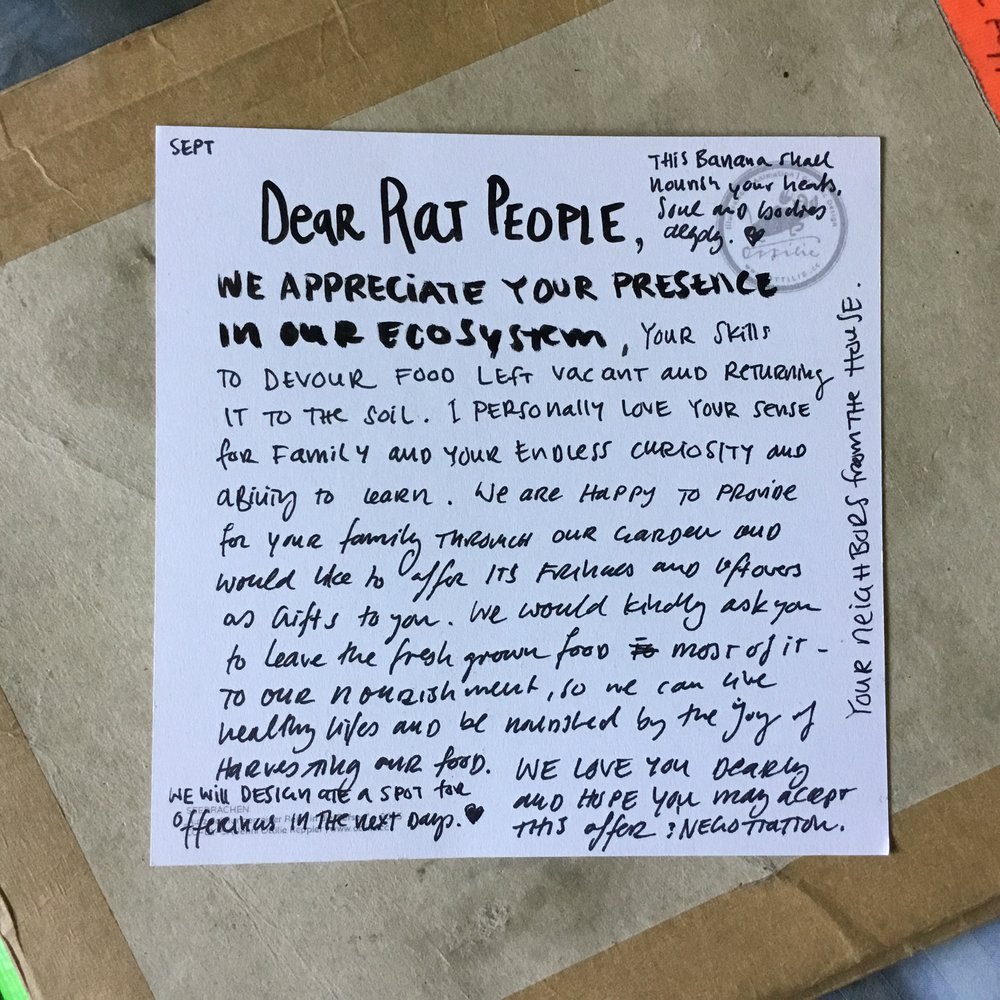 SEPT
This Banana shall
nourish your hearts,
Soul and bodies
deeply. ♥
Dear Rat People,
We appreciate your presence
in our ecosystem, your skills
to devour food left vacant and returning
it to the soil. I personally love your sense
for family and your endless curiosity and
ability to learn. We are happy to provide
for your family through our garden and
would like to offer its fringes and leftovers
as gifts to you. We would kindly ask you
to leave the fresh grown food most of it -
to our nourishment, so we can live
healthy lifes and be nourished by the joy of
harvesting our food. We love you dearly
and hope you may accept
this offer : negotiation.
We will designate a spot for
offerings in the next days. ♥
Your neighbors from the house.
Animation
Design
Ottilie
SEEDRACHEN